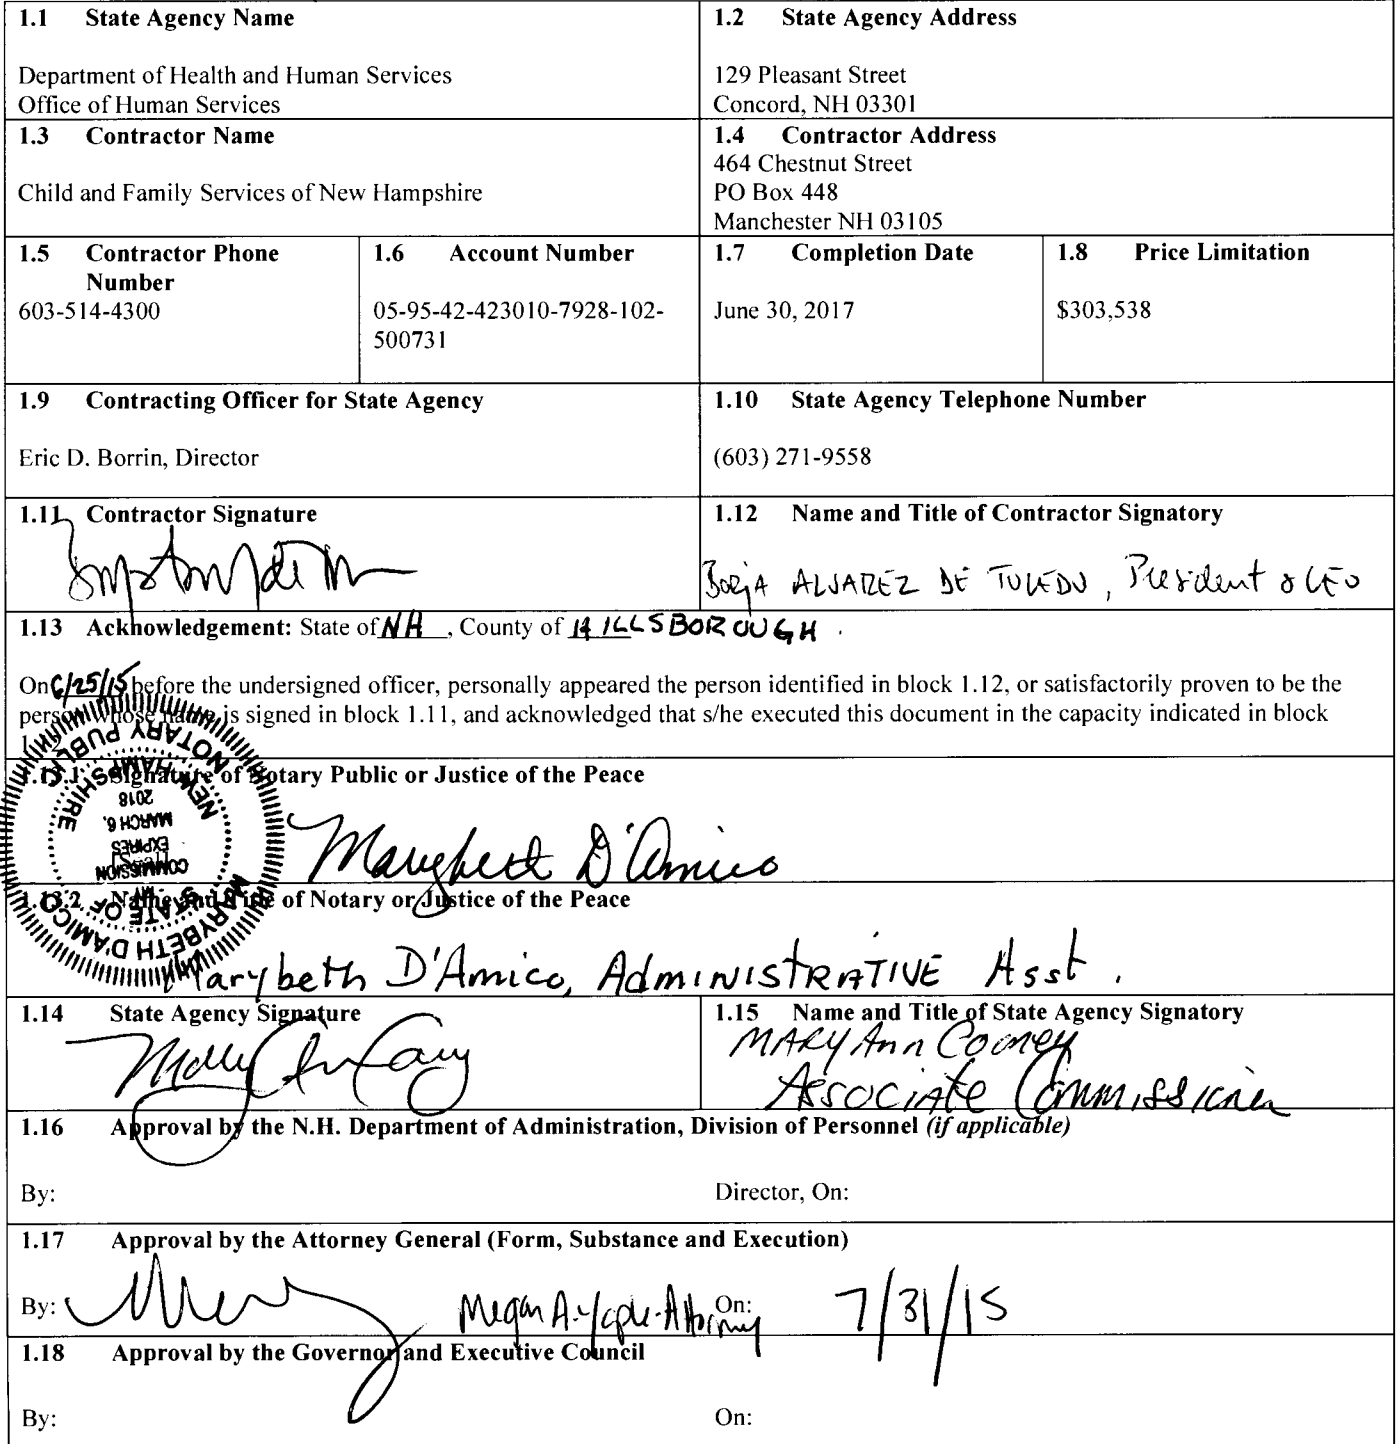 1.1 State Agency Name
Department of Health and Human Services
Office of Human Services
1.2 State Agency Address
129 Pleasant Street
Concord, NH 03301
1.3 Contractor Name
Child and Family Services of New Hampshire
1.4 Contractor Address
464 Chestnut Street
PO Box 448
Manchester NH 03105
1.5 Contractor Phone
Number
603-514-4300
1.6 Account Number
05-95-42-423010-7928-102-
500731
1.7 Completion Date
June 30, 2017
1.8 Price Limitation
$303,538
1.9 Contracting Officer for State Agency
Eric D. Borrin, Director
1.10 State Agency Telephone Number
(603) 271-9558
1.11 Contractor Signature
1.12 Name and Title of Contractor Signatory
Borja ALVAREZ DE TOLEDO, President & CEO
1.13 Acknowledgement: State of NH, County of HILLSBOROUGH.
On 6/25/15 before the undersigned officer, personally appeared the person identified in block 1.12, or satisfactorily proven to be the
person whose name is signed in block 1.11, and acknowledged that s/he executed this document in the capacity indicated in block
1.13.1 Signature of Notary Public or Justice of the Peace
Marybeth D'Amico
MARYBETH D'AMICO
STATE OF
MY
COMMISSION
EXPIRES
MARCH 6,
2018
NEW HAMPSHIRE
NOTARY PUBLIC
1.13.2 Name and Title of Notary or Justice of the Peace
Marybeth D'Amico, ADMINISTRATIVE Asst.
1.14 State Agency Signature
1.15 Name and Title of State Agency Signatory
MARY Ann Cooney
Associate Commissioner
1.16 Approval by the N.H. Department of Administration, Division of Personnel (if applicable)
By: Director, On:
1.17 Approval by the Attorney General (Form, Substance and Execution)
By: Megan A. Yaple - Attorney On: 7/31/15
1.18 Approval by the Governor and Executive Council
By: On: